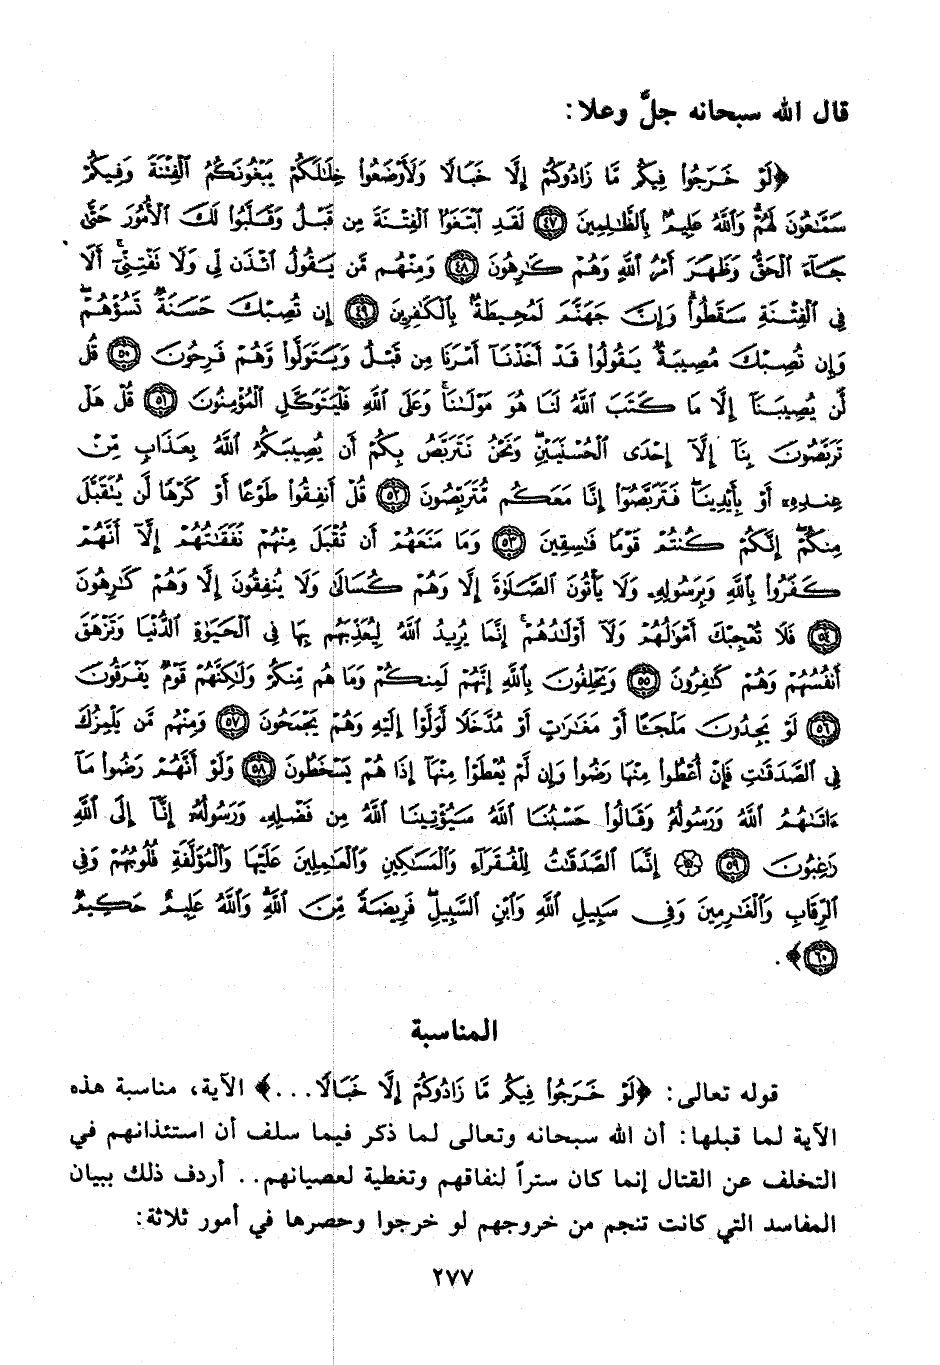 قال الله سبحانه جلَّ وعلا:
﴿لَوْ خَرَجُوا۟ فِيكُم مَّا زَادُوكُمْ إِلَّا خَبَالًا وَلَأَوْضَعُوا۟ خِلَـٰلَكُمْ يَبْغُونَكُمُ ٱلْفِتْنَةَ وَفِيكُمْ
سَمَّـٰعُونَ لَهُمْ وَٱللَّهُ عَلِيمٌۢ بِٱلظَّـٰلِمِينَ ٤٧ لَقَدِ ٱبْتَغَوُا۟ ٱلْفِتْنَةَ مِن قَبْلُ وَقَلَّبُوا۟ لَكَ ٱلْأُمُورَ حَتَّىٰ
جَآءَ ٱلْحَقُّ وَظَهَرَ أَمْرُ ٱللَّهِ وَهُمْ كَـٰرِهُونَ ٤٨ وَمِنْهُم مَّن يَقُولُ ٱئْذَن لِّى وَلَا نَفْتِنِّىٓ ۚ أَلَا
فِى ٱلْفِتْنَةِ سَقَطُوا۟ ۗ وَإِنَّ جَهَنَّمَ لَمُحِيطَةٌۢ بِٱلْكَـٰفِرِينَ ٤٩ إِن تُصِبْكَ حَسَنَةٌ تَسُؤْهُمْ ۖ
وَإِن تُصِبْكَ مُصِيبَةٌ يَقُولُوا۟ قَدْ أَخَذْنَآ أَمْرَنَا مِن قَبْلُ وَيَتَوَلَّوا۟ وَّهُمْ فَرِحُونَ ٥٠ قُل
لَّن يُصِيبَنَآ إِلَّا مَا كَتَبَ ٱللَّهُ لَنَا هُوَ مَوْلَىٰنَا ۚ وَعَلَى ٱللَّهِ فَلْيَتَوَكَّلِ ٱلْمُؤْمِنُونَ ٥١ قُلْ هَلْ
تَرَبَّصُونَ بِنَآ إِلَّآ إِحْدَى ٱلْحُسْنَيَيْنِ ۖ وَنَحْنُ نَتَرَبَّصُ بِكُمْ أَن يُصِيبَكُمُ ٱللَّهُ بِعَذَابٍ مِّنْ
عِندِهِۦٓ أَوْ بِأَيْدِينَا ۖ فَتَرَبَّصُوٓا۟ إِنَّا مَعَكُم مُّتَرَبِّصُونَ ٥٢ قُلْ أَنفِقُوا۟ طَوْعًا أَوْ كَرْهًا لَّن يُتَقَبَّلَ
مِنكُمْ ۖ إِنَّكُمْ كُنتُمْ قَوْمًا فَـٰسِقِينَ ٥٣ وَمَا مَنَعَهُمْ أَن تُقْبَلَ مِنْهُمْ نَفَقَـٰتُهُمْ إِلَّآ أَنَّهُمْ
كَفَرُوا۟ بِٱللَّهِ وَبِرَسُولِهِۦ وَلَا يَأْتُونَ ٱلصَّلَوٰةَ إِلَّا وَهُمْ كُسَالَىٰ وَلَا يُنفِقُونَ إِلَّا وَهُمْ كَـٰرِهُونَ
٥٤ فَلَا تُعْجِبْكَ أَمْوَٰلُهُمْ وَلَآ أَوْلَـٰدُهُمْ ۚ إِنَّمَا يُرِيدُ ٱللَّهُ لِيُعَذِّبَهُم بِهَا فِى ٱلْحَيَوٰةِ ٱلدُّنْيَا وَتَزْهَقَ
أَنفُسُهُمْ وَهُمْ كَـٰفِرُونَ ٥٥ وَيَحْلِفُونَ بِٱللَّهِ إِنَّهُمْ لَمِنكُمْ وَمَا هُم مِّنكُمْ وَلَـٰكِنَّهُمْ قَوْمٌ يَفْرَقُونَ
٥٦ لَوْ يَجِدُونَ مَلْجَـًٔا أَوْ مَغَـٰرَٰتٍ أَوْ مُدَّخَلًا لَّوَلَّوْا۟ إِلَيْهِ وَهُمْ يَجْمَحُونَ ٥٧ وَمِنْهُم مَّن يَلْمِزُكَ
فِى ٱلصَّدَقَـٰتِ فَإِنْ أُعْطُوا۟ مِنْهَا رَضُوا۟ وَإِن لَّمْ يُعْطَوْا۟ مِنْهَآ إِذَا هُمْ يَسْخَطُونَ ٥٨ وَلَوْ أَنَّهُمْ رَضُوا۟ مَآ
ءَاتَىٰهُمُ ٱللَّهُ وَرَسُولُهُۥ وَقَالُوا۟ حَسْبُنَا ٱللَّهُ سَيُؤْتِينَا ٱللَّهُ مِن فَضْلِهِۦ وَرَسُولُهُۥٓ إِنَّآ إِلَى ٱللَّهِ
رَٰغِبُونَ ٥٩ ۞ إِنَّمَا ٱلصَّدَقَـٰتُ لِلْفُقَرَآءِ وَٱلْمَسَـٰكِينِ وَٱلْعَـٰمِلِينَ عَلَيْهَا وَٱلْمُؤَلَّفَةِ قُلُوبُهُمْ وَفِى
ٱلرِّقَابِ وَٱلْغَـٰرِمِينَ وَفِى سَبِيلِ ٱللَّهِ وَٱبْنِ ٱلسَّبِيلِ ۖ فَرِيضَةً مِّنَ ٱللَّهِ ۗ وَٱللَّهُ عَلِيمٌ حَكِيمٌ
٦٠﴾.
المناسبة
قوله تعالى: ﴿لَوْ خَرَجُوا۟ فِيكُم مَّا زَادُوكُمْ إِلَّا خَبَالًا...﴾ الآية، مناسبة هذه
الآية لما قبلها: أن الله سبحانه وتعالى لما ذكر فيما سلف أن استئذانهم في
التخلف عن القتال إنما كان ستراً لنفاقهم وتغطية لعصيانهم.. أردف ذلك ببيان
المفاسد التي كانت تنجم من خروجهم لو خرجوا وحصرها في أمور ثلاثة:
٢٧٧